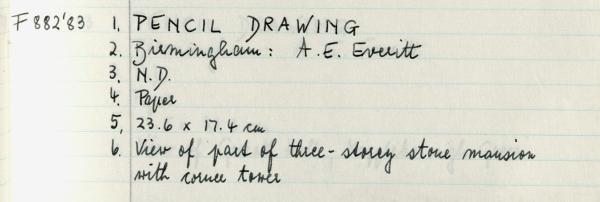 F 882'83 1. PENCIL DRAWING
2. Birmingham: A.E. Everitt
3. N.D.
4. Paper
5. 23.6 x 17.4 cm
6. View of part of three-storey stone mansion
with corner tower